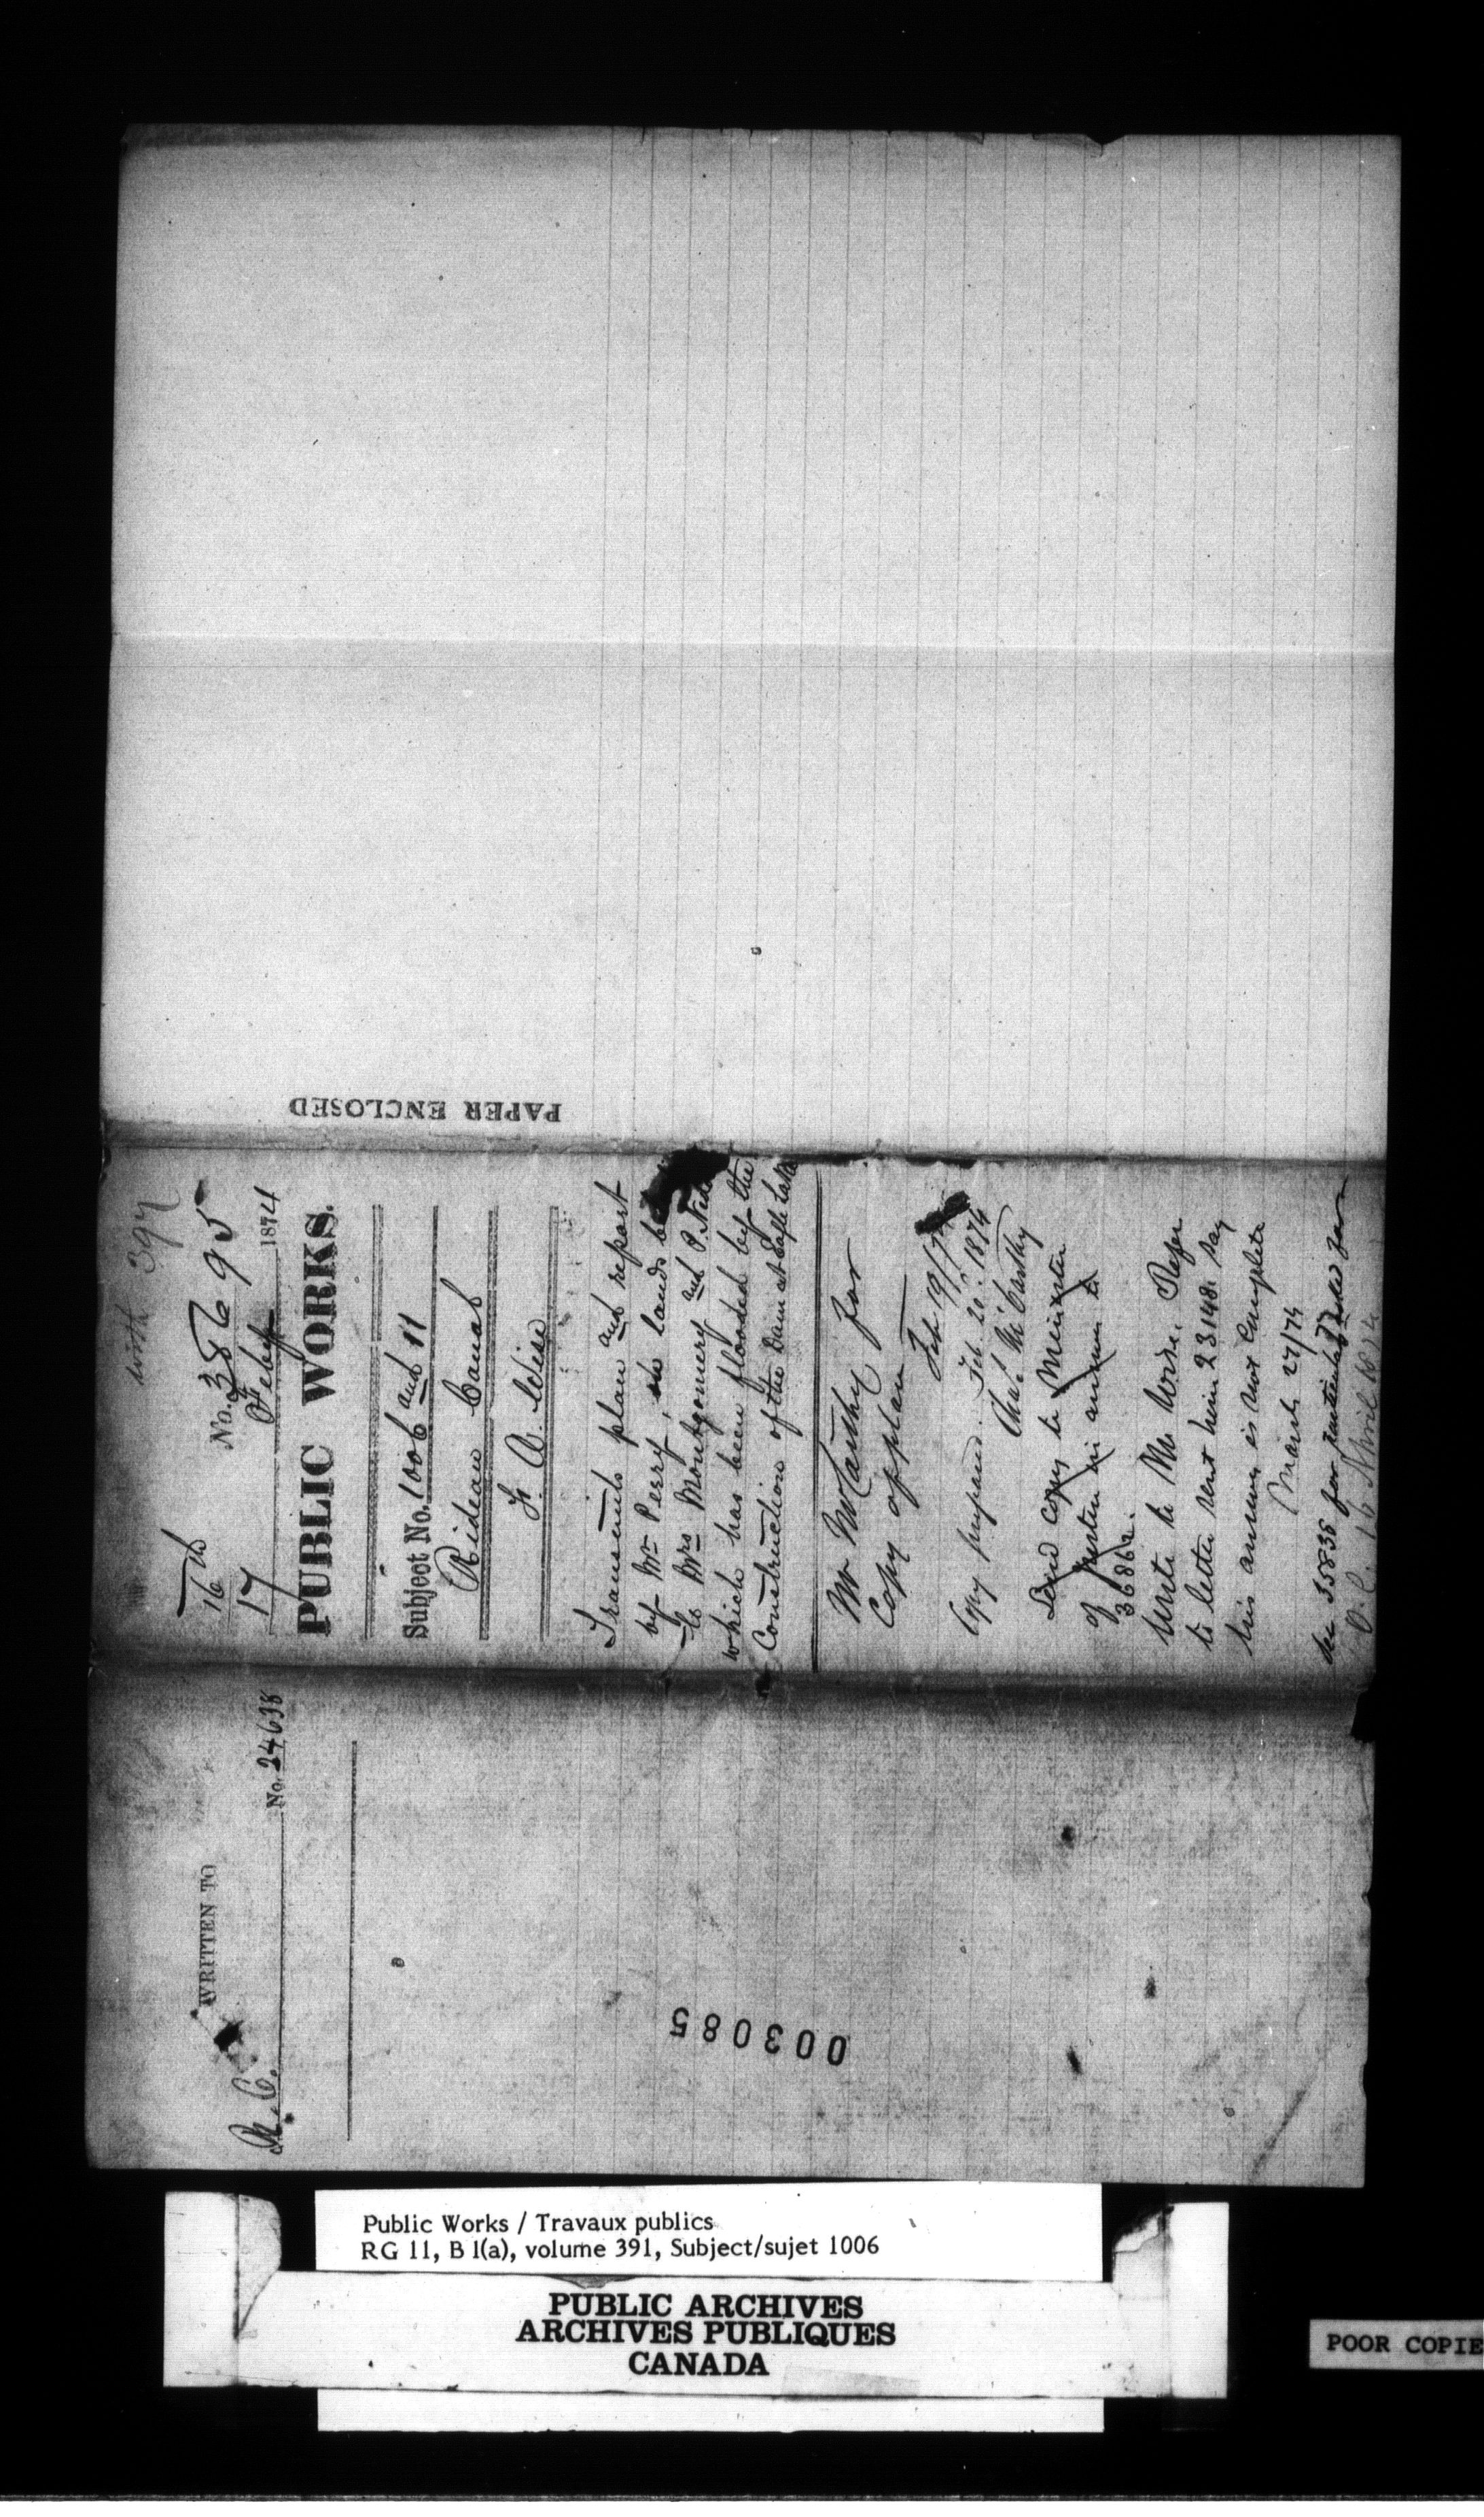 with 397
16th No. 38695
17 Feby 1874
PUBLIC WORKS.
Subject No. 1006 and 11
Rideau Canal
F. A. Wise
Transmits plan and report
by Mr Perry, on lands
to Mrs Montgomery and P.
which has been flooded by the
Construction of the Dam at Eagle Lake
Mr McCarthy for
Copy of plan
Feb 19/74
Copy prepared. Feb. 20: 1874
Chs. McCarthy
Send copy to Minister
of Justice in answer to
36862.
Write to Mr Wise. Refer
to letter sent him 23148. Say
his answer is not complete
March 27/74
See 35835 for
O.C. 16 April 1874
PAPER ENCLOSED
WRITTEN TO
No. 24638
003085
Public Works / Travaux publics
RG 11, B 1(a), volume 391, Subject/sujet 1006
PUBLIC ARCHIVES
ARCHIVES PUBLIQUES
CANADA
POOR COPIE